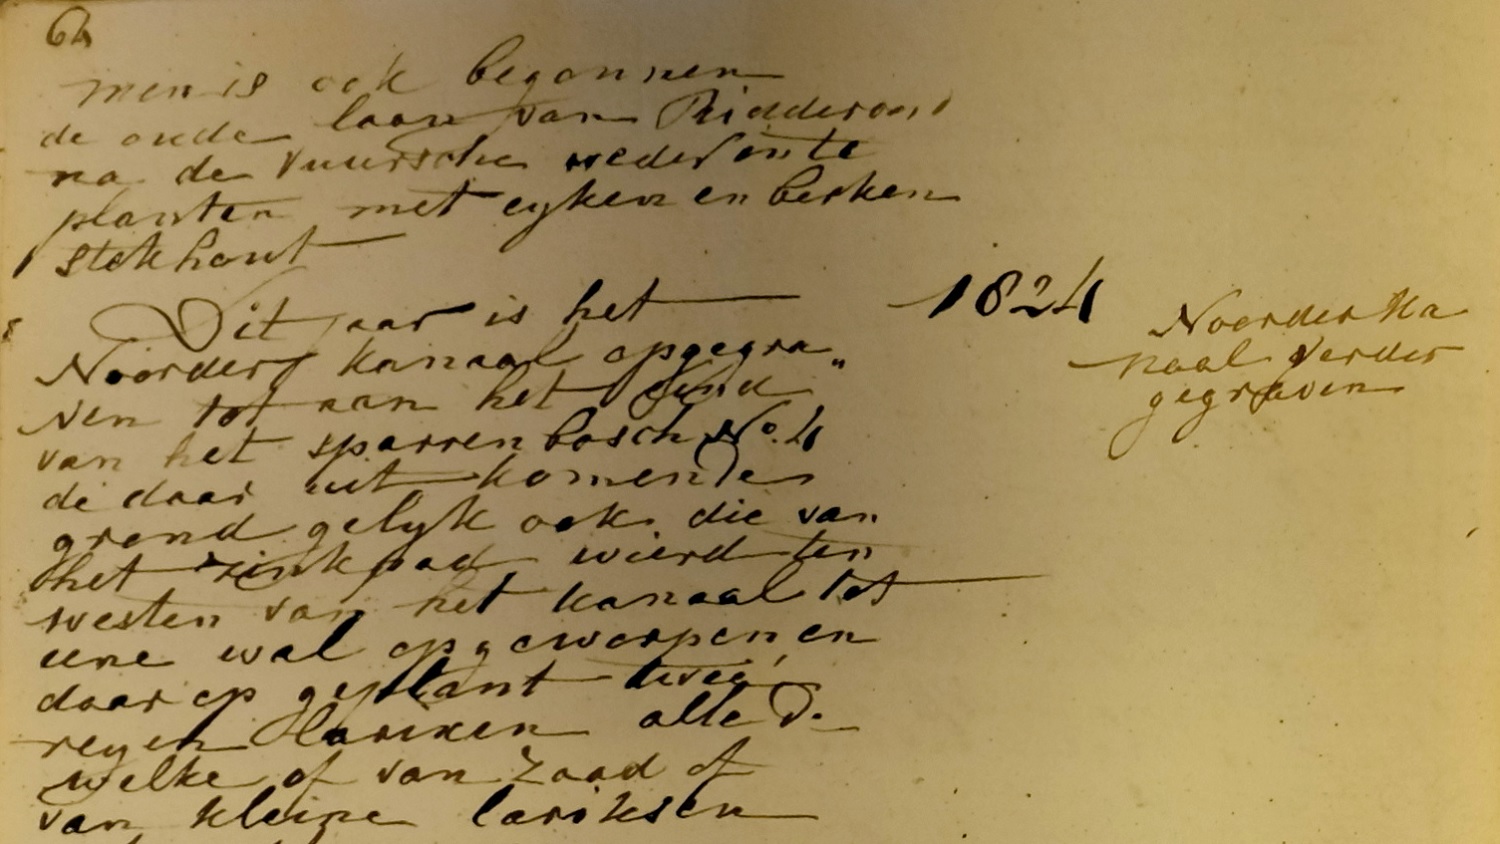 64
men is ook begonnen
de oude laan van Ridderoort
na de Vuursche wederom te
planten met eyken en berken
stekhout
Dit jaar is het
1824
Noorder kanaal opgegra„
ven tot aan het eynd
van het sparrenbosch No. 4
de daar uit komende
grond gelyk ook die van
het zinkpad wierd ten
westen van het kanaal tot
eene wal opgeworpen en
daar op geplant twee
reyen larixen alle
welke of van zaad of
van kleine lariksen
Noorder Ka
naal verder
gegraven